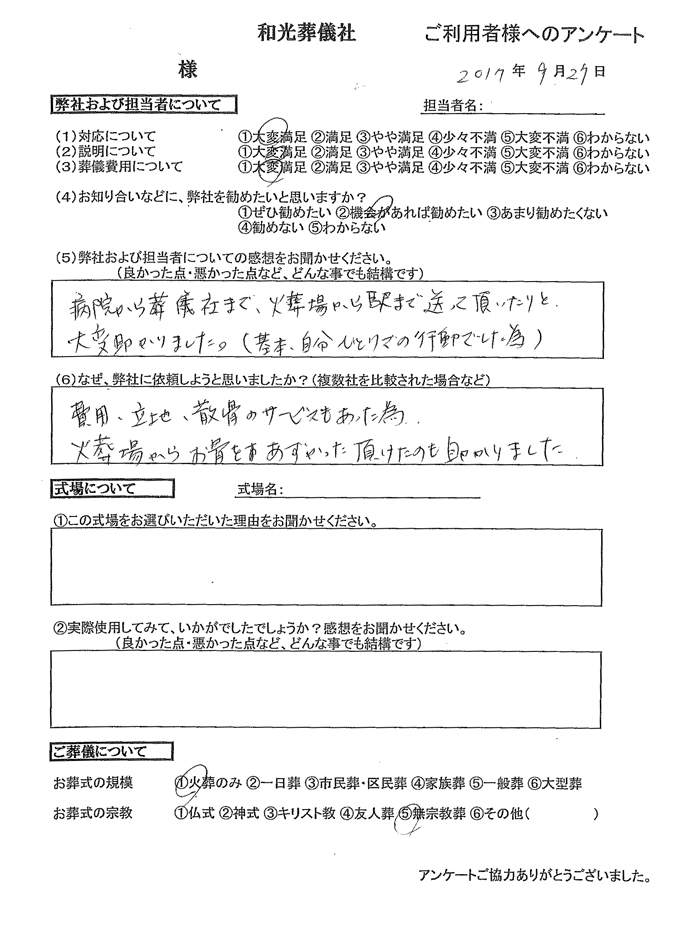 和光葬儀社 ご利用者様へのアンケート
様 2017年9月27日
弊社および担当者について 担当者名:
(1)対応について ①大変満足 ②満足 ③やや満足 ④少々不満 ⑤大変不満 ⑥わからない
(2)説明について ①大変満足 ②満足 ③やや満足 ④少々不満 ⑤大変不満 ⑥わからない
(3)葬儀費用について ①大変満足 ②満足 ③やや満足 ④少々不満 ⑤大変不満 ⑥わからない
(4)お知り合いなどに、弊社を勧めたいと思いますか?
①ぜひ勧めたい ②機会があれば勧めたい ③あまり勧めたくない
④勧めない ⑤わからない
(5)弊社および担当者についての感想をお聞かせください。
(良かった点・悪かった点など、どんな事でも結構です)
病院から葬儀社まで、火葬場から駅まで送って頂いたりと
大変助かりました。(基本、自分ひとりでの行動でした為)
(6)なぜ、弊社に依頼しようと思いましたか?(複数社を比較された場合など)
費用、立地、散骨のサービスもあった為
火葬場からお骨をあずかった頂けたのも助かりました
式場について 式場名:
①この式場をお選びいただいた理由をお聞かせください。
②実際使用してみて、いかがでしたでしょうか?感想をお聞かせください。
(良かった点・悪かった点など、どんな事でも結構です)
ご葬儀について
お葬式の規模 ①火葬のみ ②一日葬 ③市民葬・区民葬 ④家族葬 ⑤一般葬 ⑥大型葬
お葬式の宗教 ①仏式 ②神式 ③キリスト教 ④友人葬 ⑤無宗教葬 ⑥その他( )
アンケートご協力ありがとうございました。